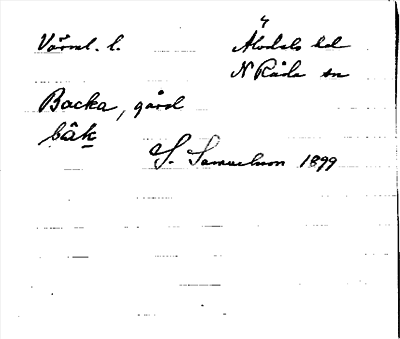 Värml. l. Älvdals hd
N Råda sn
Backa, gård
bàk
S. Samuelsson 1899